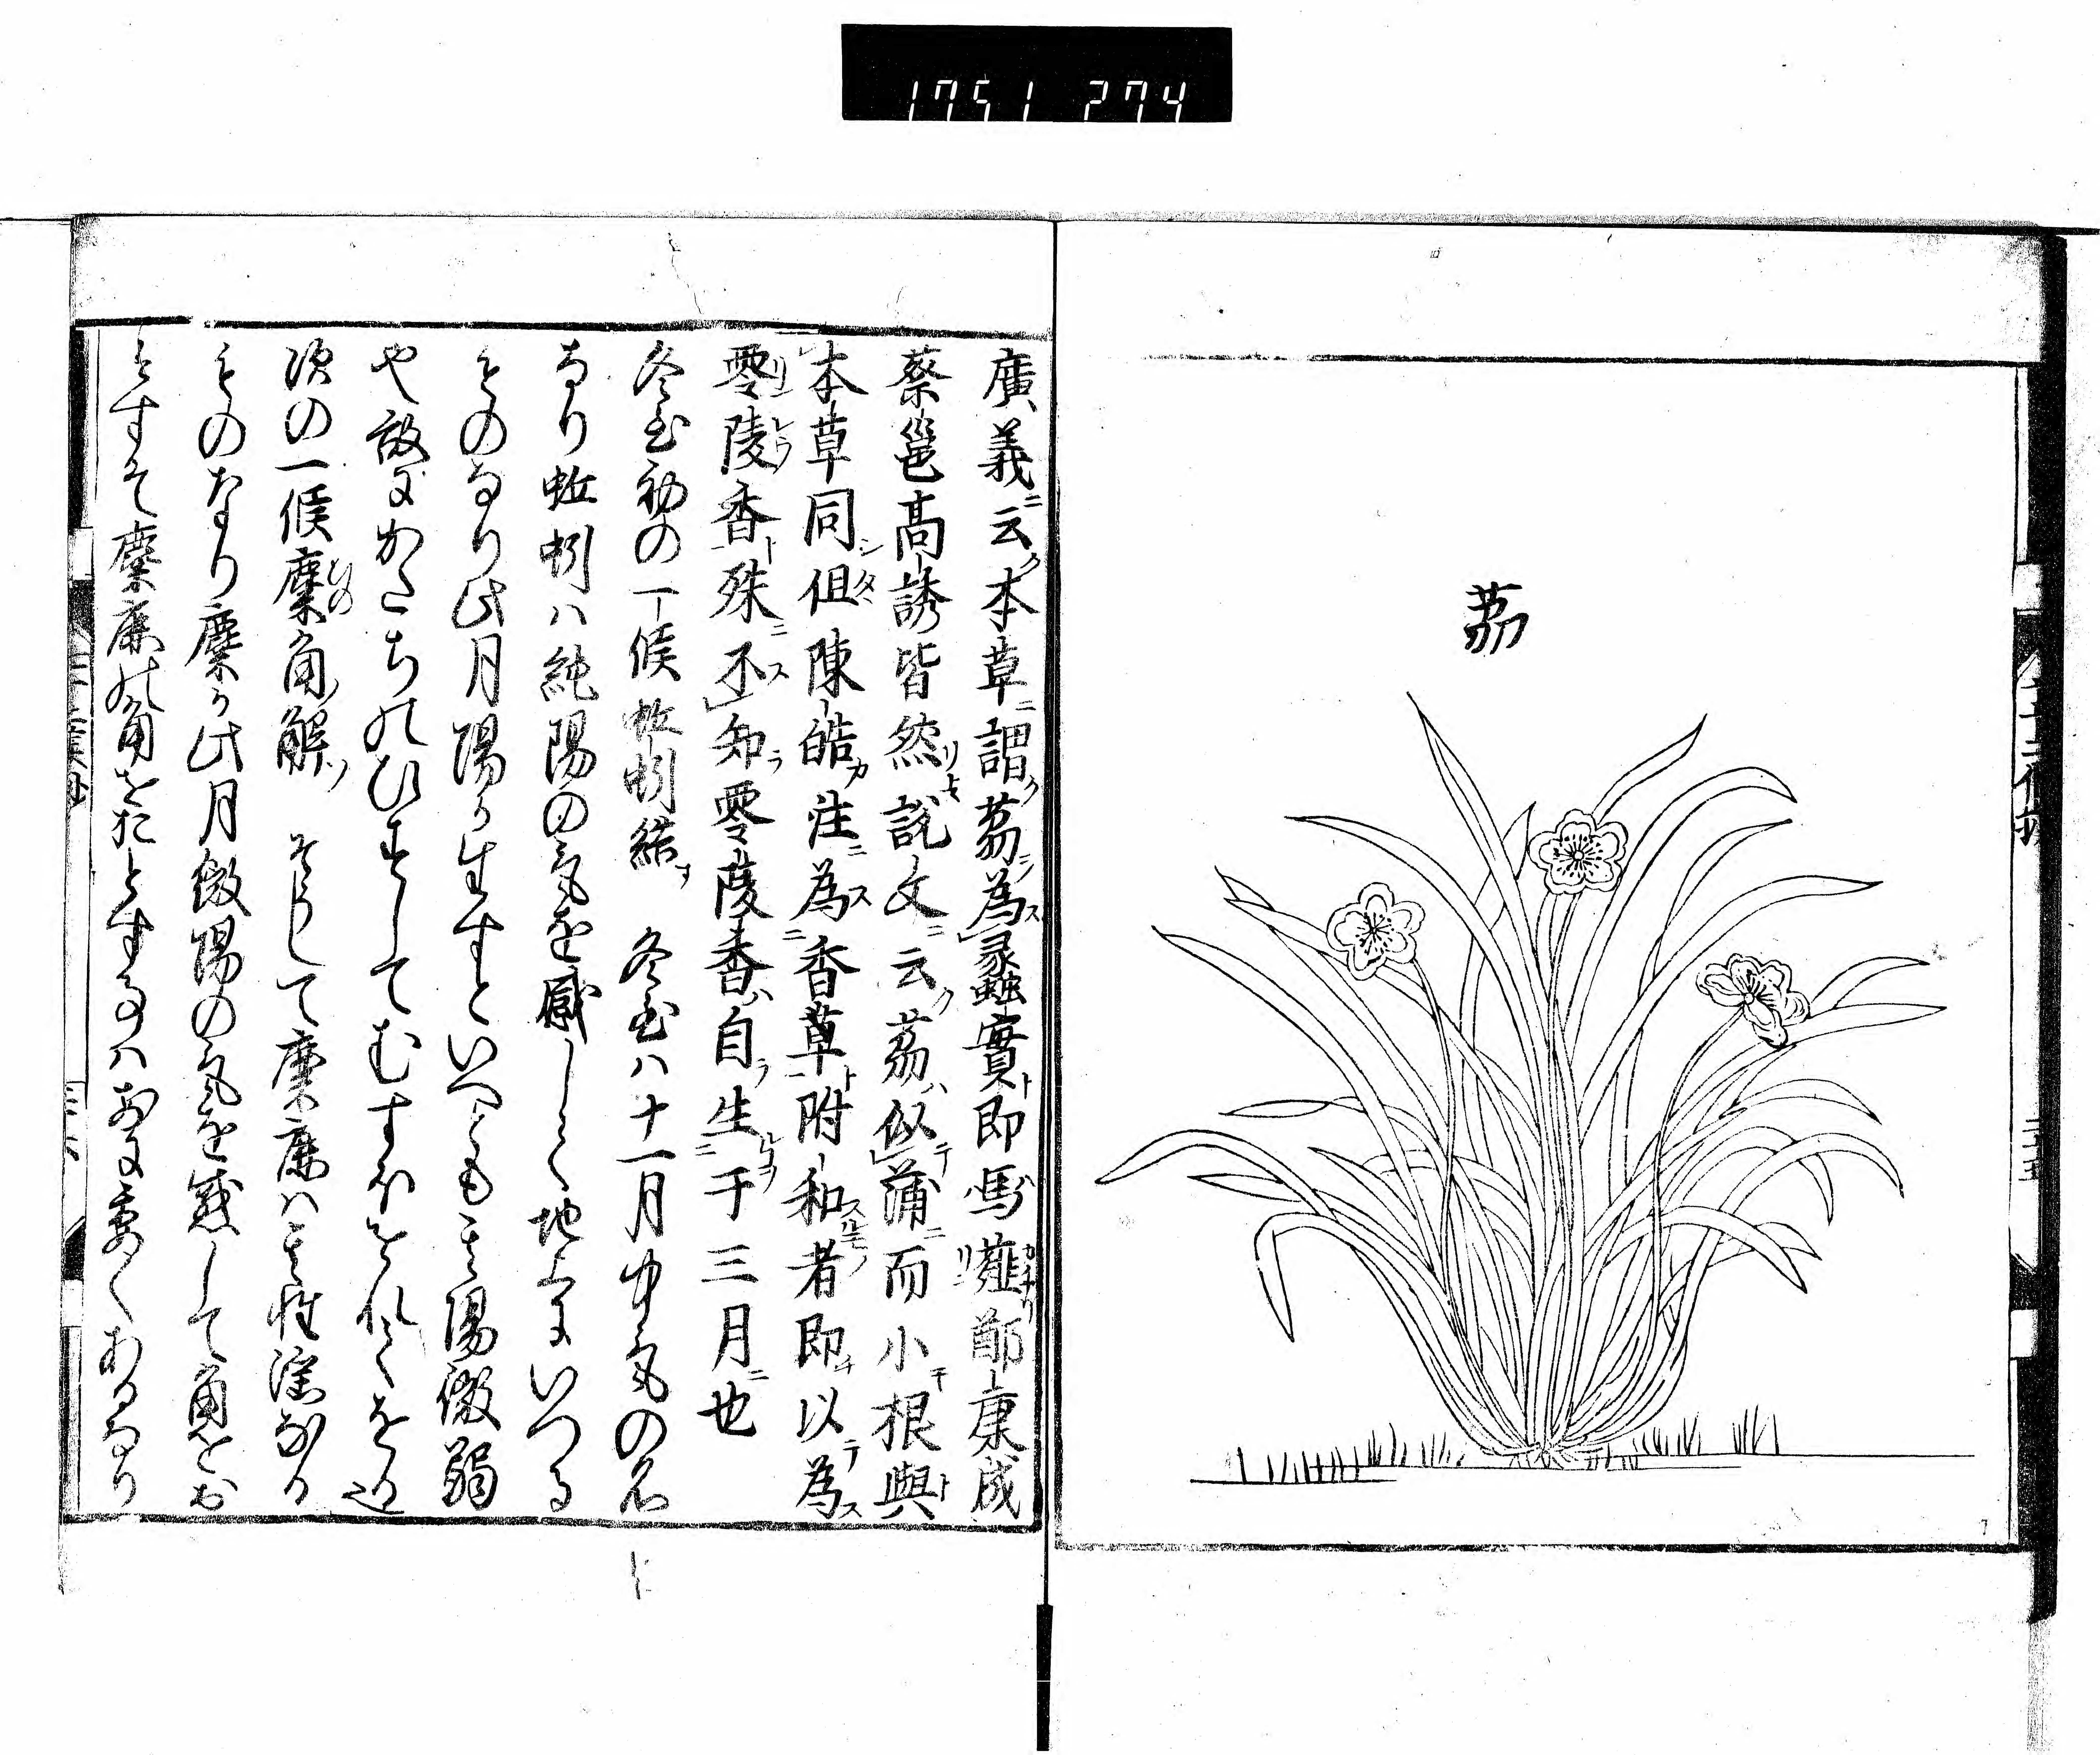 1751 274
茘
廣義云本草謂茘為蠡實即馬䪥鄭康成
蔡邕高誘皆然説文云茘似蒲而小根與
本草同但陳皓注為香草附和者即以為
零陵香殊不知零陵香自生于三月也
冬至初の一候蚯蚓結 冬至ハ十一月中氣の名
なり蚯蚓ハ純陽の氣を感しく地上にいつる
ものなり此月陽か生すといへとも其陽微弱
や故にかたちのひすしてむすほを
次の一候麋角解 そうして麋鹿ハ其性淫なる
ものなり麋か此月微陽の氣を感して角をお
とすそ麋鹿の角をおとす事ハ あるなり